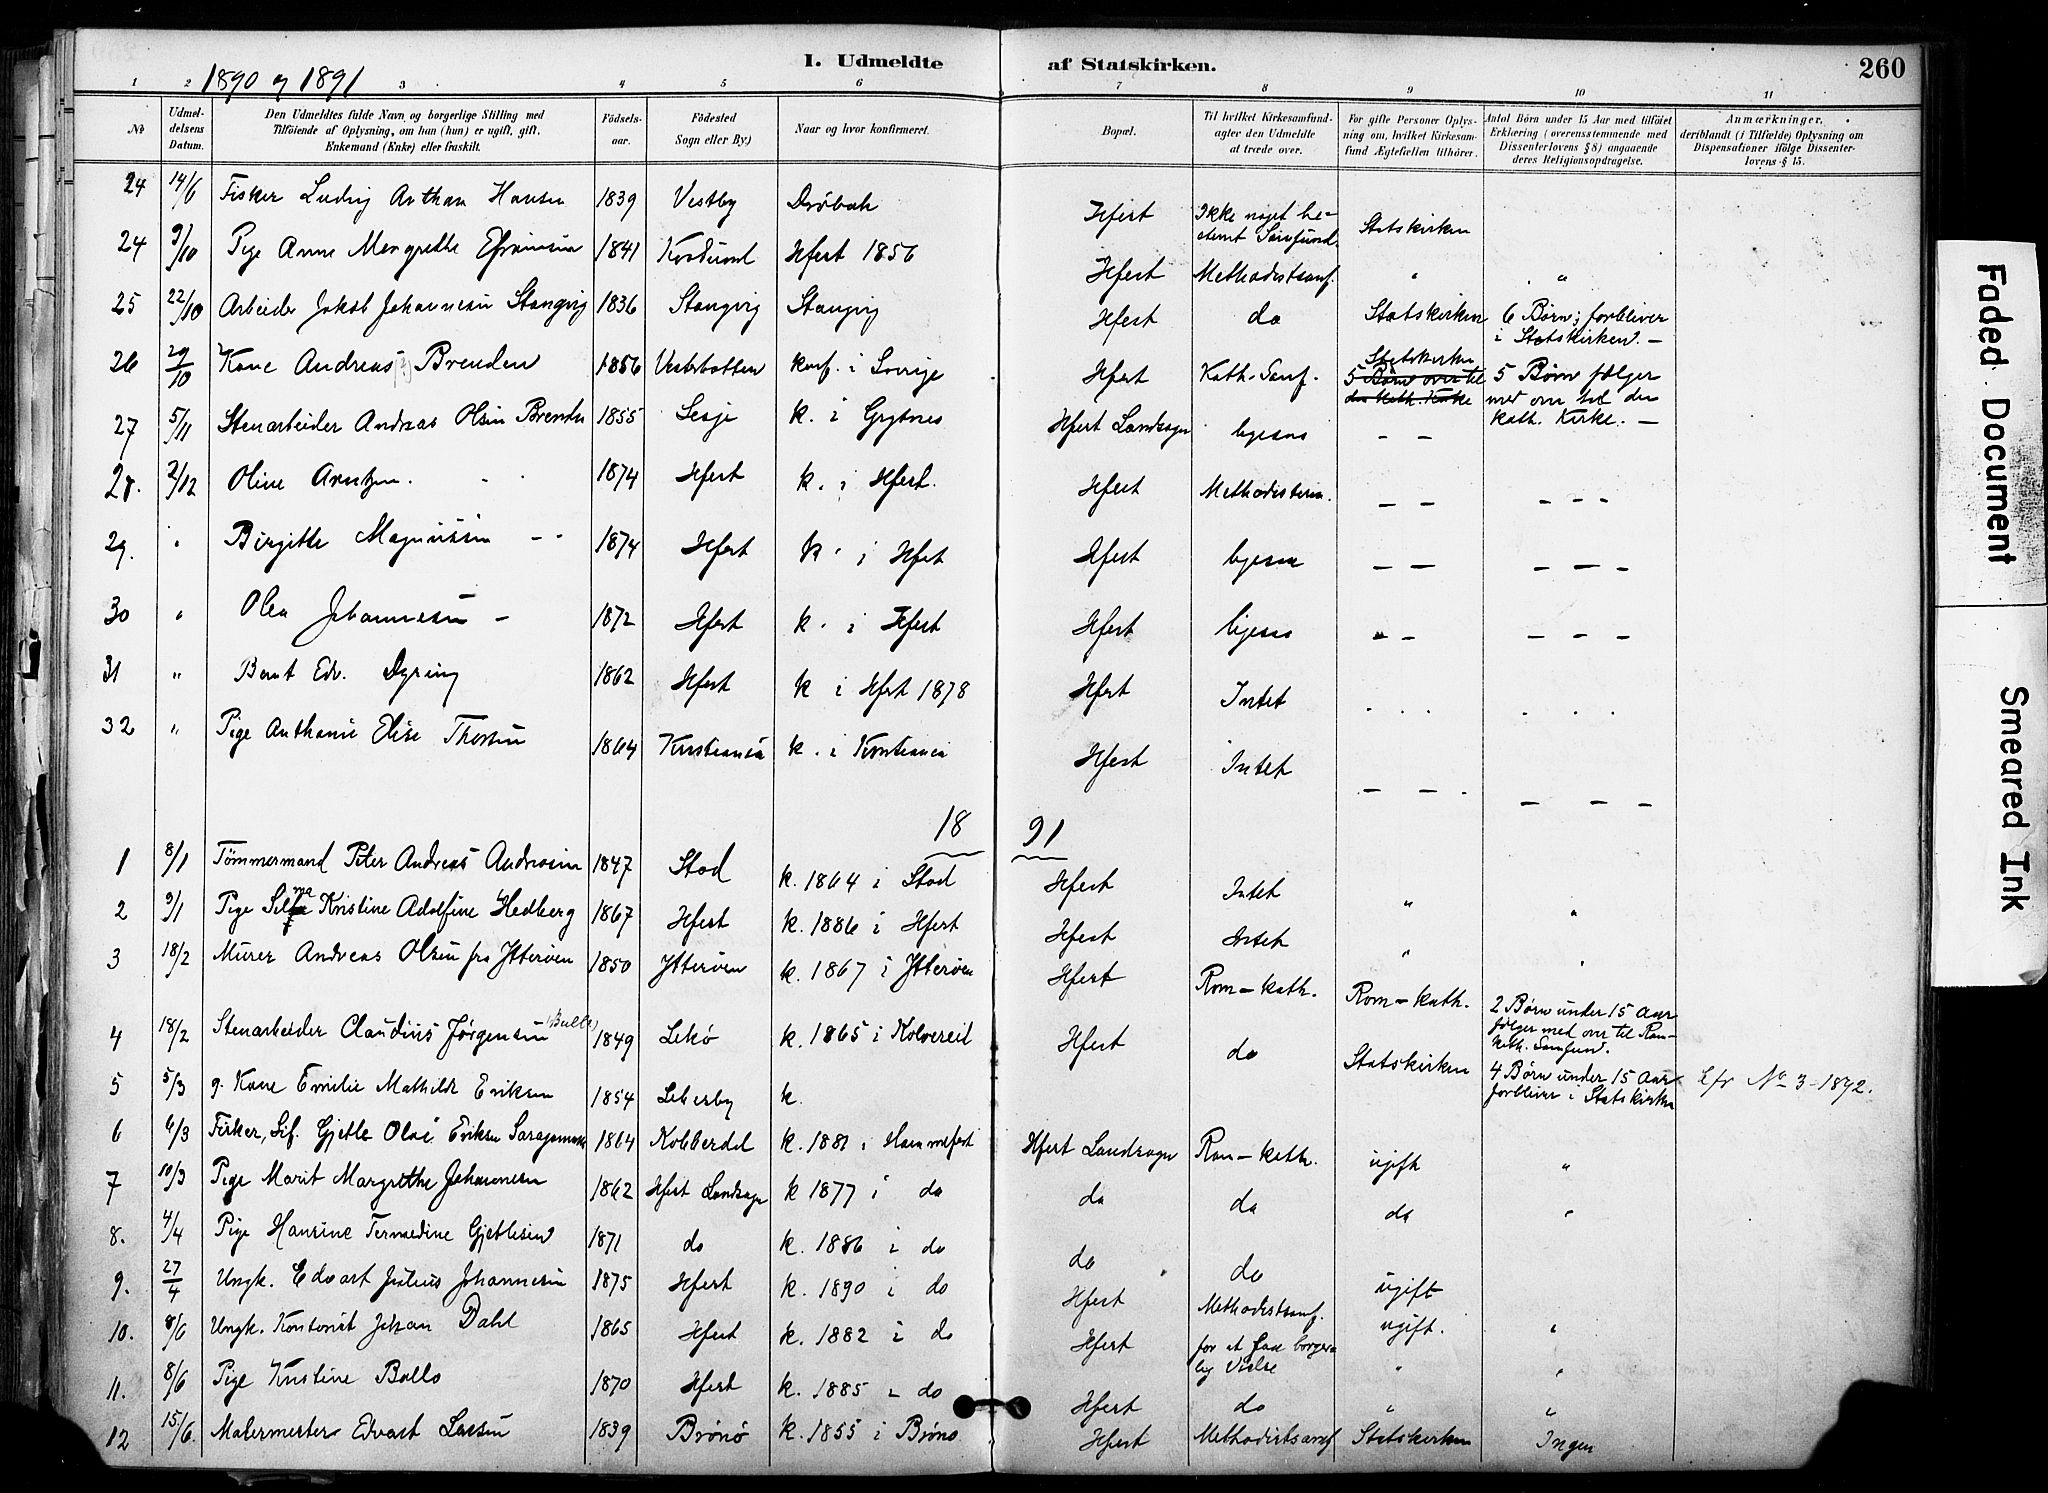 1890 og 1891
I. Udmeldte af Statskirken.
260
1 2 3 4 5 6 7 8 9 10 11
No
Udmeldelsens Datum.
Den Udmeldtes fulde Navn og borgerlige Stilling med Tilføiende af Oplysning, om han (hun) er ugift, gift, Enkemand (Enke) eller fraskilt.
Fødselsaar.
Fødested Sogn eller By.)
Naar og hvor konfirmeret.
Bopæl.
Til hvilket Kirkesamfund agter den Udmeldte at træde over.
For gifte Personer Oplysning om, hvilket Kirkesamfund Ægtefællen tilhører.
Antal Børn under 15 Aar med tilføiet Erklæring (overensstemmende med Dissenterlovens § 8) angaaende deres Religionsopdragelse.
Anmærkninger, deriblandt (i Tilfælde) Oplysning om Dispensationer ifølge Dissenterlovens § 15.
24 14/6 Fisker Ludvig Anthon Hansen 1839 Vestby Drøbak Hfest Ikke noget bestemt Samfund. Statskirken
24 9/10 Pige Anne Margrethe 1841 Hfest 1856 Hfest Methodistsamf. " "
25 22/10 Arbeider Jakob Johannesen Stangvig 1836 Stangvig Stangvig Hfest do Statskirken 6 Børn; forbliver i Statskirken. —
26 29/10 Kone Andreas Brenden 1856 Vesterbotten konf. i Sverige Hfest Kath. Samf. Statskirken 5 Børn over til den kath. Kirke 5 Børn følger med over til den kath. Kirke. —
27 5/11 Stenarbeider Andreas Olsen Brenden 1855 Lesje k. i Grytnes Hfest Landsogn ligesaa — —
28. 2/12 Oline Arntzen. 1874 Hfest k. i Hfest. Hfest Methodistern. — — — — —
29. " Birgitte Magnussen 1874 Hfest k. i Hfest Hfest ligesaa — — — — —
30 " Olea Johannesen — 1872 Hfest k. i Hfest Hfest ligesaa " — — — —
31 " Bernt Edv. Dyring 1862 Hfest k i Hfest 1878 Hfest Intet . . . . . .
32 " Pige Anthonie Elise 1864 Kristiania k. i Kristiania Hfest Intet — — . — — —
1891
1 8/1 Tømmermand Peter Andreas Andreasen 1847 Stod k. 1864 i Stod Hfest Intet " "
2 9/1 Pige Selma Kristine Adolfine Hedberg 1867 Hfest k. 1886 i Hfest Hfest Intet " "
3 18/2 Murer Andreas Olsen fra Ytterøen 1850 Ytterøen k. 1867 i Ytterøen Hfest Rom-kath. Rom-kath. 2 Børn under 15 Aar følger med over til Rom-kath. Samfund.
4 18/2 Stenarbeider Claudius Jørgensen 1849 Lekø k. 1865 i Kolvereid Hfest do Statskirken 4 Børn under 15 Aar forbliver i Statskirken Cfr No 3-1892.
5 5/3 g. Kone Emilie Mathilde Eriksen 1854 Lebesby k.
6 6/3 Fisker, Gjetle Olai Eriksen 1864 Kobberdal k. 1881 i Hammerfest Hfest Landsogn Rom-kath. ugift "
7 10/3 Pige Marit Margrethe Johannesen 1862 Hfest Landsogn k 1877 i do do do do "
8. 4/4 Pige Hansine Gjetlesen 1871 do k. 1886 i do do do
9. 27/4 Ungk. Edvart Julius Johannesen 1875 Hfest k. 1890 i do Hfest Methodistsamf. ugift
10. 8/6 Ungk. Kontorist Johan Dahl 1865 Hfest k. 1882 i do Hfest for at faa borgerlig Vielse ugift. "
11. 8/6 Pige Kristine Ballo 1870 Hfest k. 1885 i do Hfest do " "
12 15/6. Malermester Edvart Larsen 1839 Brønø k. 1855 i Brønø Hfest Methodistsamf Statskirken Ingen
Faded Document
Smeared Ink